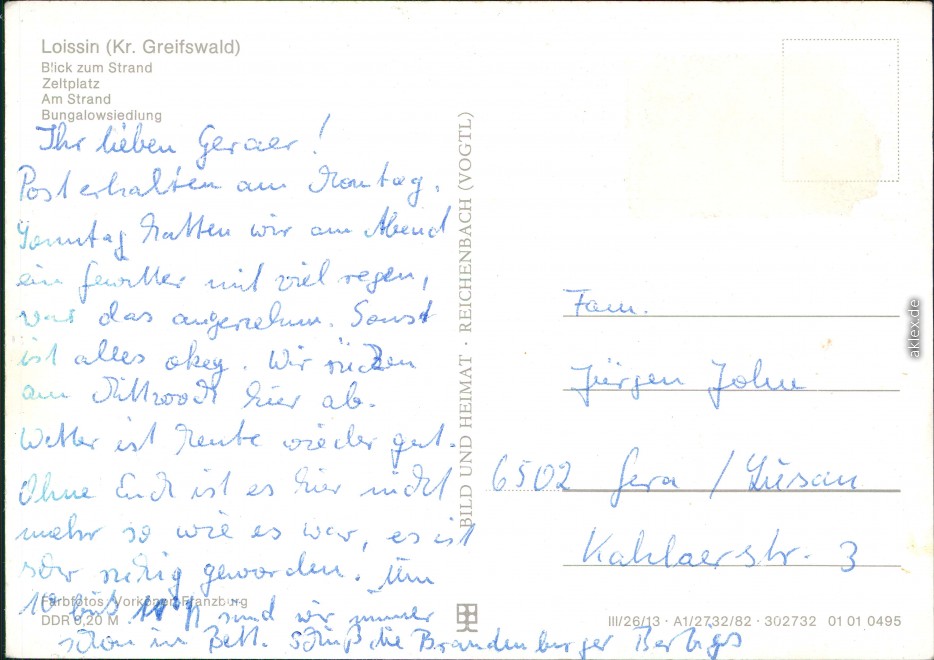 Loissin (Kr. Greifswald)
Blick zum Strand
Zeltplatz
Am Strand
Bungalowsiedlung
Ihr lieben Geraer!
Post erhalten am Montag.
Sonntag hatten wir am Abend
ein Gewitter mit viel regen,
war das angenehm. Sonst
ist alles okey. Wir rücken
am Mittwoch hier ab.
Wetter ist heute wieder gut.
Ohne Euch ist es hier nicht
mehr so wie es war, es ist
sehr ruhig geworden. Um
10 bis 11 sind wir immer
schon im Bett. Tschüß die Brandenburger
Farbfotos: Vorköper, Franzburg
DDR 0,20 M
BILD UND HEIMAT · REICHENBACH (VOGTL)
Fam.
Jürgen John
6502 Gera / Lusan
Kahlaerstr. 3
III/26/13 · A1/2732/82 · 302732 01 01 0495
aklex.de